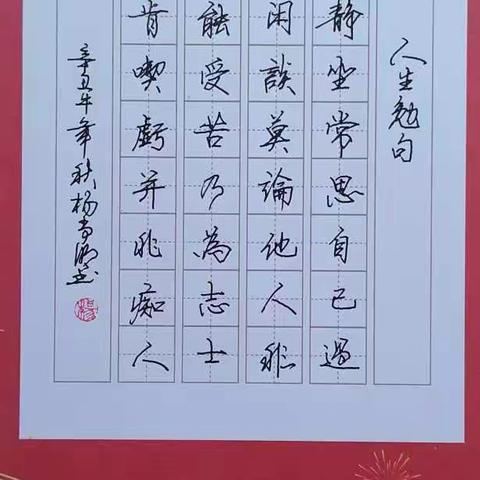 人生勉句
静坐常思自己過
闲談莫論他人非
能受苦乃為志士
肯喫虧并非痴人
辛丑牛年秋杨